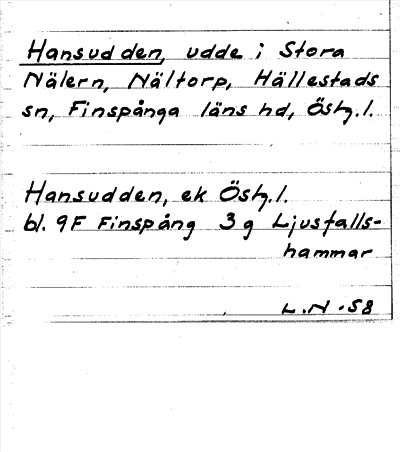 Hansudden, udde i Stora
Nälern, Nältorp, Hällestads
sn, Finspånga läns hd, Östg.l.
Hansudden, ek Östg.l.
bl. 9F Finspång 3g Ljusfalls-
hammar
L.N. 58